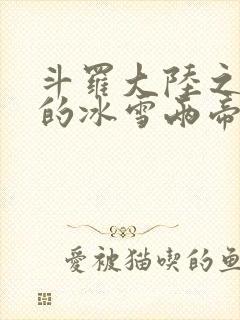 斗羅大陸之
的冰雪兩帝
愛被猫喫的魚